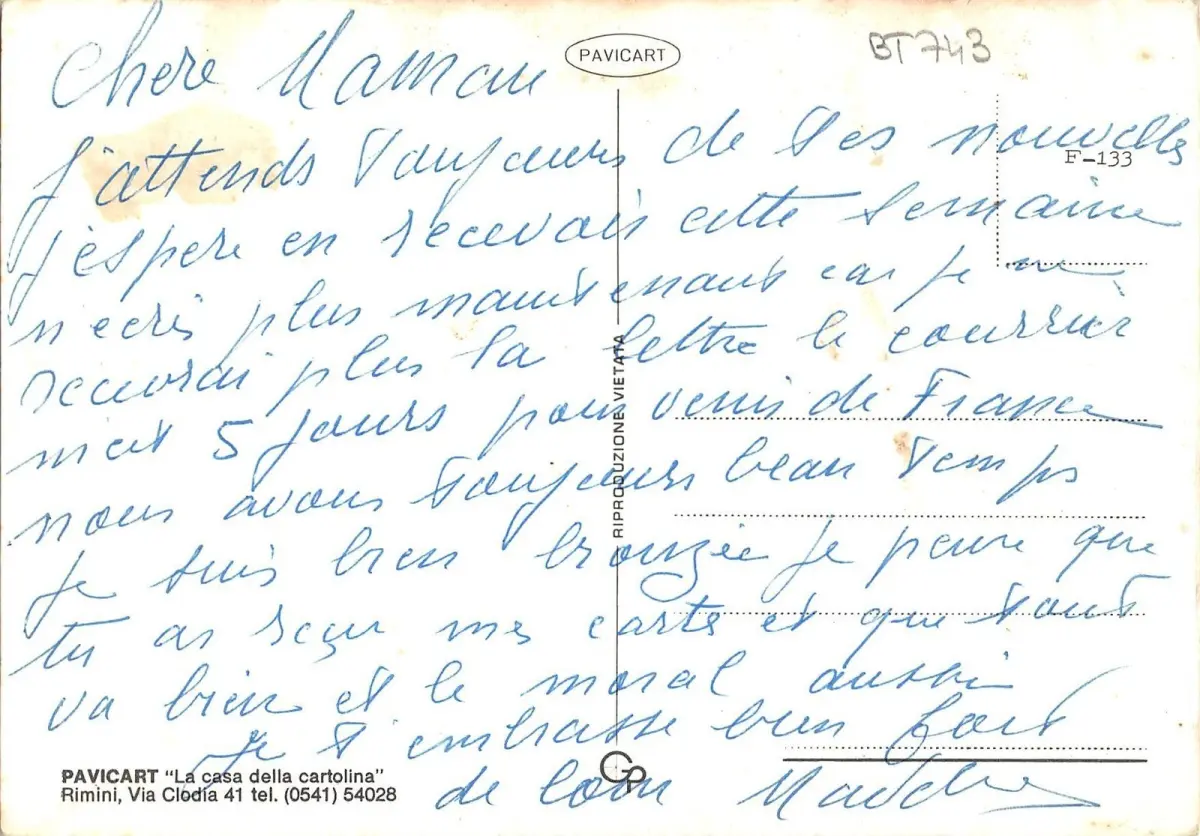 PAVICART
BT743
Chere Maman
F-133
J'attends toujours de tes nouvelles
j'espere en recevoir cette semaine
n'ecris plus maintenant car je ne
recevrai plus ta lettre le courrier
met 5 jours pour venir de France
nous avons toujours beau temps
je suis bien bronzée je pense que
tu as reçu mes carte et que tout
va bien et le moral aussi
Je t'embrasse bien fort
de loin
RIPRODUZIONE VIETATA
GP
PAVICART "La casa della cartolina"
Rimini, Via Clodia 41 tel. (0541) 54028